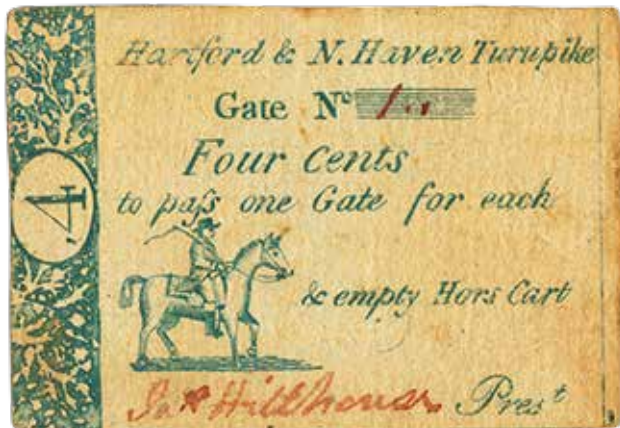 Hartford & N. Haven Turnpike
Gate Nº 1
Four Cents
to paſs one Gate for each
4
& empty Hors Cart
Jaˢ Hillhouse Presᵗ